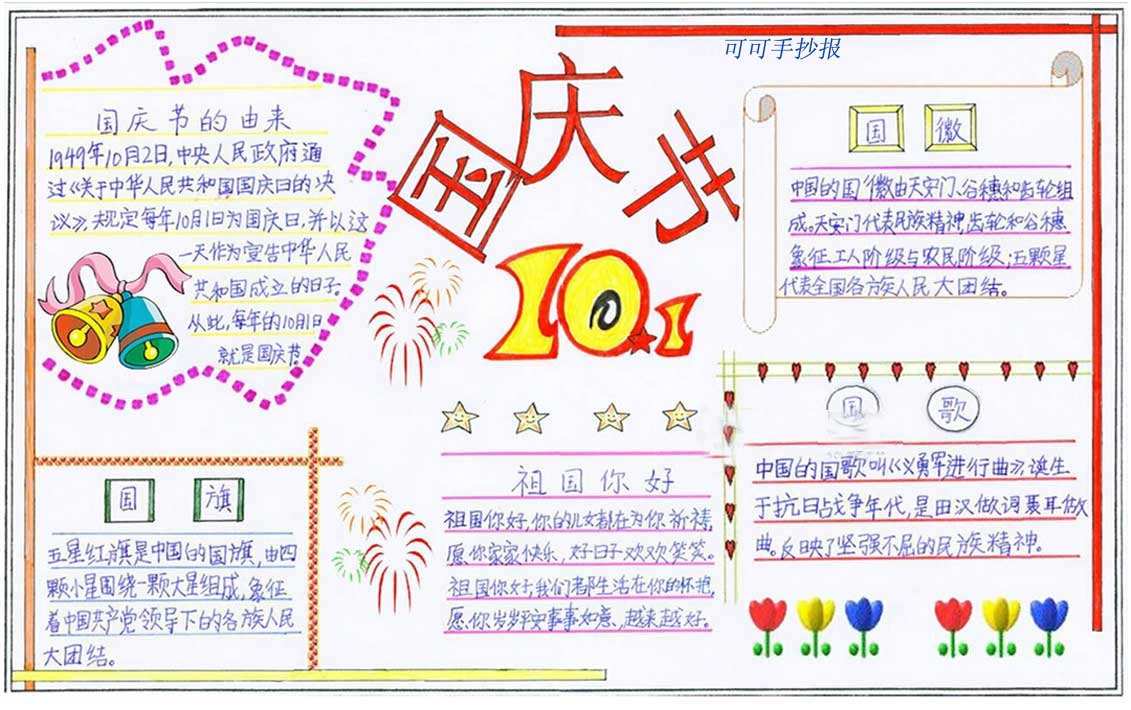 可可手抄报
国庆节
10.1
国庆节的由来
1949年10月2日,中央人民政府通
过《关于中华人民共和国国庆日的决
议》,规定每年10月1日为国庆日,并以这
一天作为宣告中华人民
共和国成立的日子。
从此,每年的10月1日
就是国庆节。
国徽
中国的国徽由天安门、谷穗和齿轮组
成。天安门代表民族精神,齿轮和谷穗
象征工人阶级与农民阶级;五颗星
代表全国各族人民大团结。
国旗
五星红旗是中国的国旗,由四
颗小星围绕一颗大星组成,象征
着中国共产党领导下的各族人民
大团结。
祖国你好
祖国你好,你的儿女都在为你祈祷,
愿你家家快乐,好日子欢欢笑笑。
祖国你好,我们都生活在你的怀抱,
愿你岁岁平安事事如意,越来越好。
国歌
中国的国歌叫《义勇军进行曲》诞生
于抗日战争年代,是田汉做词聂耳做
曲。反映了坚强不屈的民族精神。